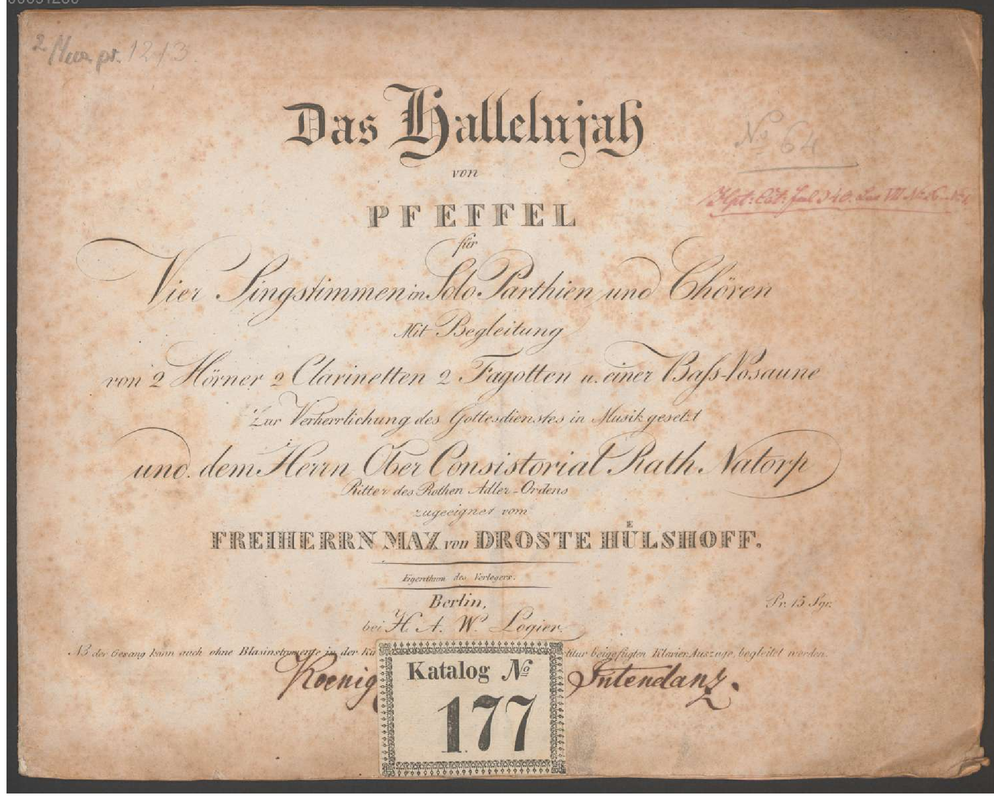 2 Mus. pr. 1243
Das Hallelujah
No 64
von
PFEFFEL
für
Vier Singstimmen in Solo Parthien und Chören
Mit Begleitung
von 2 Hörner 2 Clarinetten 2 Fagotten u. einer Bass-Posaune
Zur Verherrlichung des Gottesdienstes in Musik gesetzt
und dem Herrn Ober Consistorial Rath Natorp
Ritter des Rothen Adler-Ordens
zugeeignet vom
FREIHERRN MAX von DROSTE HÜLSHOFF.
Eigenthum des Verlegers.
Berlin,
Pr. 15 Sgr.
bei H. A. W. Logier.
NB der Gesang kann auch ohne Blasinstrumente in der beigefügten Klavier Auszuge, begleitet werden.
Koenig Intendanz.
Katalog No
177